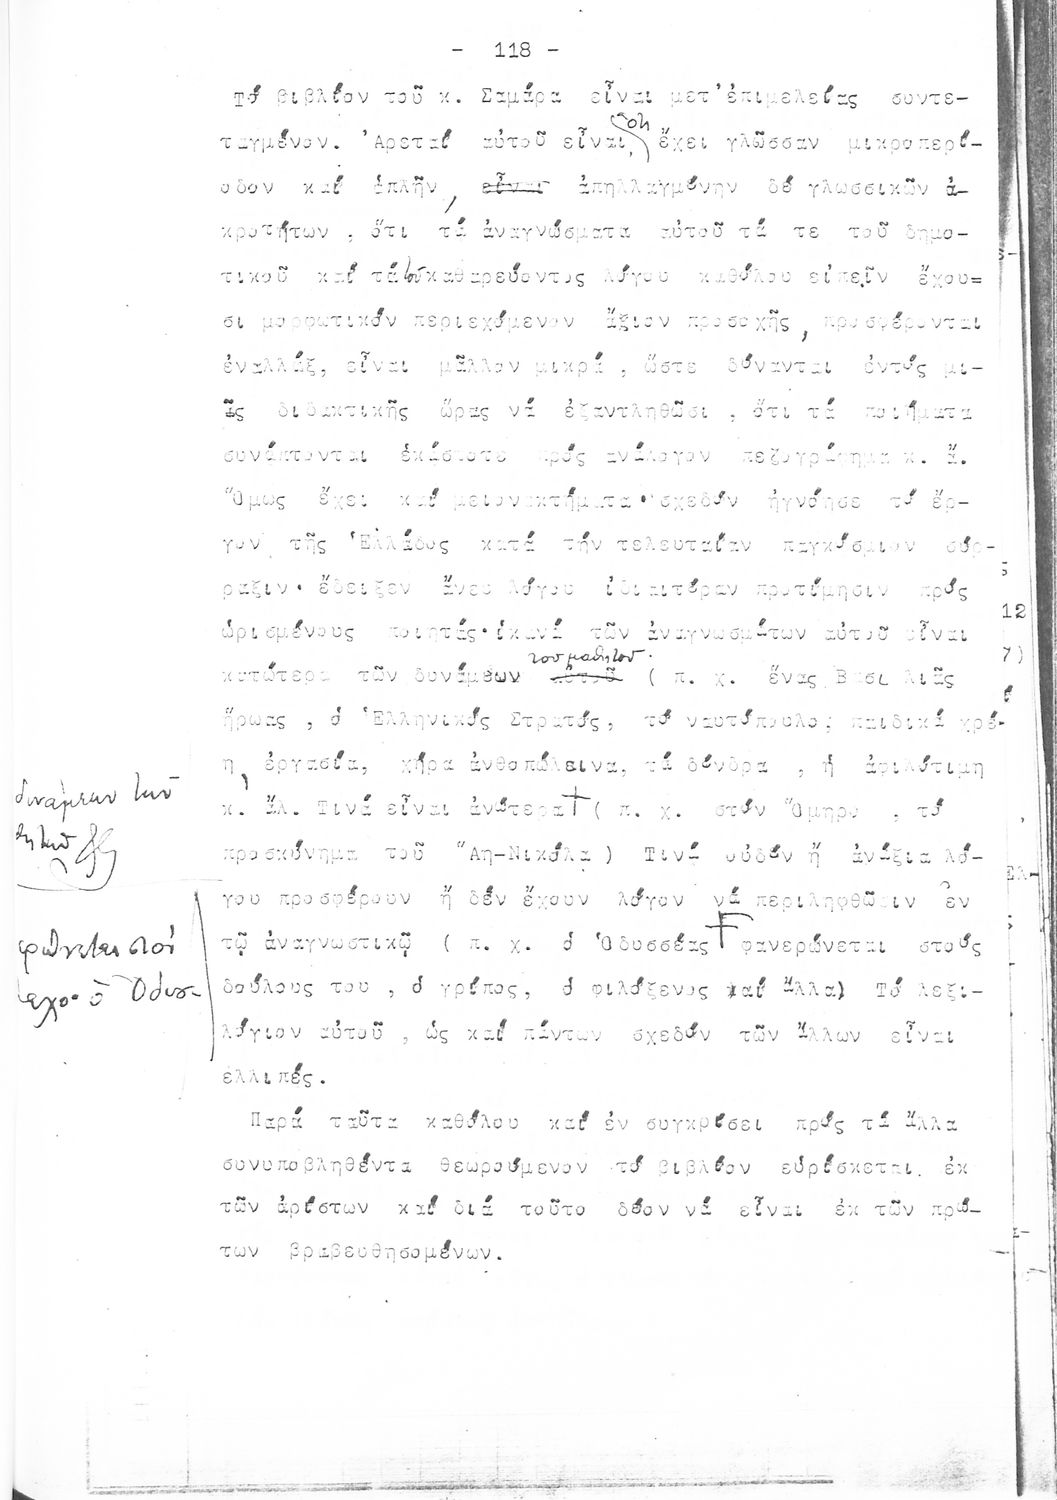 - 118 -
Τό βιβλίον τοῦ κ. Σαμάρα εἶναι μετ' ἐπιμελείας συντε-
ταγμένον. Ἀρεταί αὐτοῦ εἶναι, ὅτι ἔχει γλῶσσαν μικροπερί-
οδον καί ἁπλῆν, εἶναι ἀπηλλαγμένην δέ γλωσσικῶν ἀ-
κροτήτων, ὅτι τά ἀναγνώσματα αὐτοῦ τά τε τοῦ δημο-
τικοῦ καί τά τοῦ καθαρεύοντος λόγου καθόλου εἰπεῖν ἔχου=
σι μορφωτικόν περιεχόμενον ἄξιον προσοχῆς, προσφέρονται
ἐναλλάξ, εἶναι μᾶλλον μικρά, ὥστε δύνανται ἐντός μι-
ᾶς διδακτικῆς ὥρας νά ἐξαντληθῶσι, ὅτι τά ποιήματα
συνάπτονται ἑκάστοτε πρός ἀνάλογον πεζογράφημα κ. ἄ.
Ὅμως ἔχει καί μειονεκτήματα· σχεδόν ἠγνόησε τό ἔρ-
γον τῆς Ἑλλάδος κατά τήν τελευταίαν παγκόσμιον σύρ-
ραξιν· ἔδειξεν ἄνευ λόγου ἰδιαιτέραν προτίμησιν πρός
ὡρισμένους ποιητάς· ἱκανά τῶν ἀναγνωσμάτων αὐτοῦ εἶναι
του μαθητοῦ
κατώτερα τῶν δυνάμεων αὐτοῦ ( π. χ. ἕνας Βασιλιᾶς
ἥρωας, ὁ Ἑλληνικός Στρατός, τό ναυτόπουλο, παιδικά χρέ-
η, ἐργασία, χήρα ἀνθοπώλεινα, τά δένδρα, ἡ ἀφιλότιμη
κ. ἄλ. Τινά εἶναι ἀνώτερα † ( π. χ. στόν Ὅμηρο, τό
προσκύνημα τοῦ Ἅη-Νικόλα ) Τινά οὐδέν ἤ ἀνάξια λό-
γου προσφέρουν ἤ δέν ἔχουν λόγον νά περιληφθῶσιν ἐν
τῷ ἀναγνωστικῷ ( π. χ. ὁ Ὀδυσσέας φανερώνεται στούς
δούλους του, ὁ γρίπος, ὁ φιλόξενος καί ἄλλα) Τό λεξι-
λόγιον αὐτοῦ, ὡς καί πάντων σχεδόν τῶν ἄλλων εἶναι
ἐλλιπές.
Παρά ταῦτα καθόλου καί ἐν συγκρίσει πρός τά ἄλλα
συνυποβληθέντα θεωρούμενον τό βιβλίον εὑρίσκεται ἐκ
τῶν ἀρίστων καί διά τοῦτο δέον νά εἶναι ἐκ τῶν πρώ-
των βραβευθησομένων.
δυνάμεων τῶν
12
7)